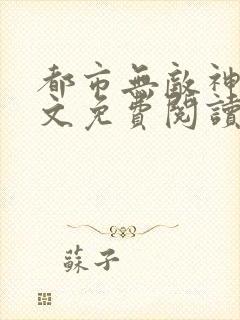 都市無敵神
文免費閱讀
蘇子